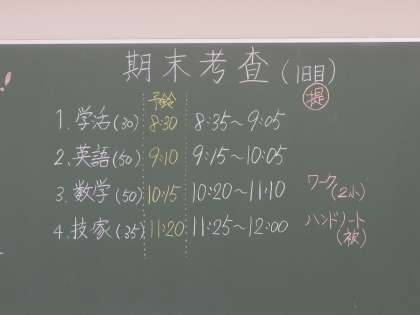 期末考査(1日目)
予鈴 提
1. 学活(30) 8:30 8:35~9:05
2. 英語(50) 9:10 9:15~10:05
3. 数学(50) 10:15 10:20~11:10 ワーク(2小)
4. 技家(35) 11:20 11:25~12:00 ハンドノート
(被)